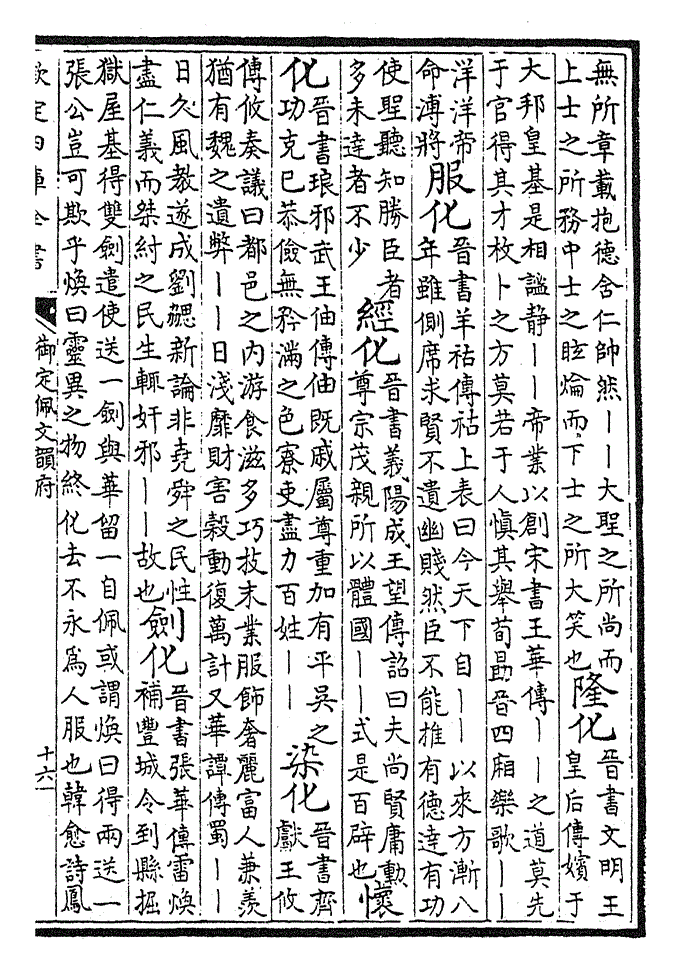 無所章載抱德含仁帥然——大聖之所尚而上士之所務中士之眩爚而下士之所大笑也隆化晉書文明王皇后傳嬪于
大邦皇基是相謐静——帝業以創宋書王華傳——之道莫先于官得其才枚卜之方莫若于人慎其舉荀勗晉四厢樂歌——
洋洋帝命溥將服化晉書羊祜傳祜上表曰今天下自——以來方漸八年雖側席求賢不遺幽賤然臣不能推有德達有功
使聖聽知勝臣者多未達者不少經化晉書義陽成王望傳詔曰夫尚賢庸勳尊宗茂親所以體國——式是百辟也懷
化晉書琅邪武王伷傳伷既戚屬尊重加有平吳之功克己恭儉無矜滿之色寮吏盡力百姓——染化晉書齊獻王攸
傳攸奏議曰都邑之内游食滋多巧技末業服飾奢麗富人兼羨猶有魏之遺弊——日淺靡財害穀動復萬計又華譚傳蜀——
日久風教遂成劉勰新論非堯舜之民性盡仁義而桀紂之民生輒奸邪——故也劍化晉書張華傳雷煥補豐城令到縣掘
獄屋基得雙劍遣使送一劍與華留一自佩或謂煥曰得兩送一張公豈可欺乎煥曰靈異之物終化去不永為人服也韓愈詩鳳
欽定四庫全書
御定佩文韻府
十六